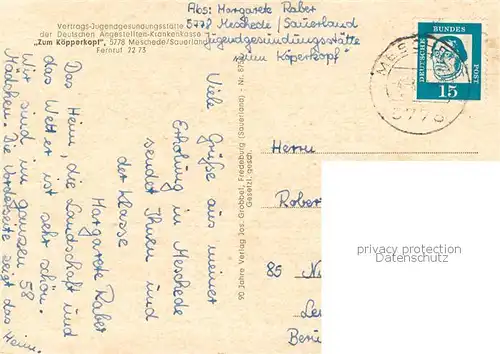 Vertrags-Jugendgesundungsstätte
der Deutschen Angestellten-Krankenkasse
„Zum Köpperkopf", 5778 Meschede/Sauerland
Fernruf 72 73
Abs: Margarete Raber
5778 Meschede/Sauerland
Jugendgesundungsstätte
zum Köperkopf
Viele Grüße aus meiner
Erholung in Meschede
sendet Ihnen und
der Klasse
Margarete Raber
Das Heim, die Landschaft und
das Wetter ist sehr schön.
Wir sind im ganzen 58
Mädchen. Die Vorderseite zeigt das
Heim.
90 Jahre Verlag Jos. Grobbel, Fredeburg (Sauerland) - Nr.
Gesetzl. gesch.
DEUTSCHE BUNDES POST
15
5778
Herrn
Rober
85 N
Le
privacy protection
Datenschutz